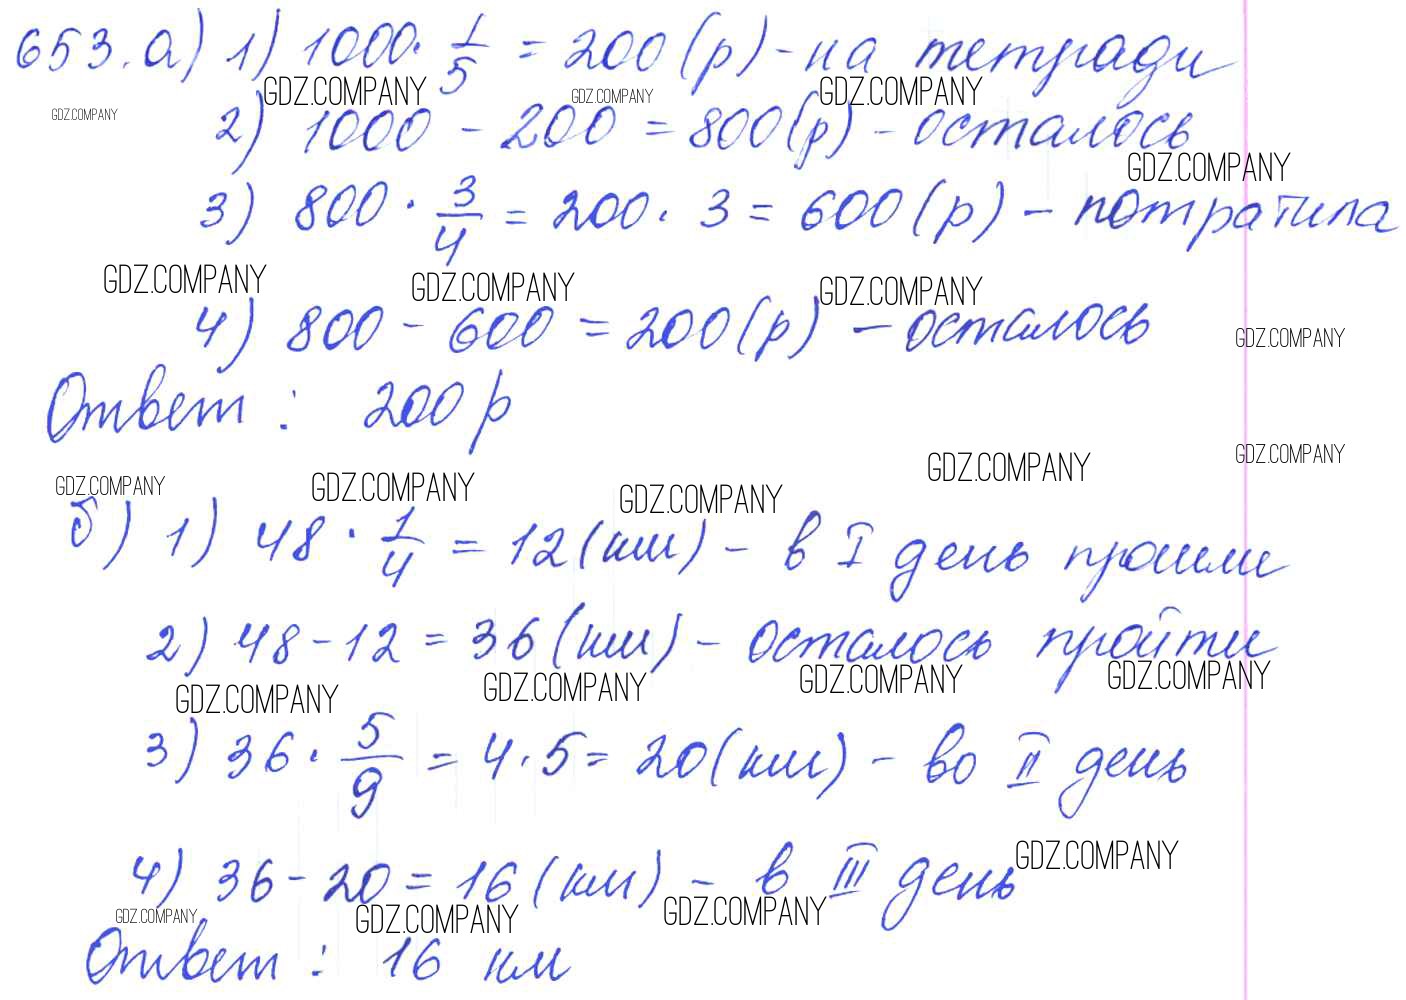 653. а) 1) 1000 · 1/5 = 200 (р) - на тетради
GDZ.COMPANY GDZ.COMPANY GDZ.COMPANY
GDZ.COMPANY
2) 1000 - 200 = 800 (р) - осталось
GDZ.COMPANY
3) 800 · 3/4 = 200 · 3 = 600 (р) - потратила
GDZ.COMPANY GDZ.COMPANY GDZ.COMPANY
4) 800 - 600 = 200 (р) - осталось
GDZ.COMPANY
Ответ: 200 р
GDZ.COMPANY GDZ.COMPANY
GDZ.COMPANY GDZ.COMPANY GDZ.COMPANY
б) 1) 48 · 1/4 = 12 (км) - в I день прошли
2) 48 - 12 = 36 (км) - осталось пройти
GDZ.COMPANY GDZ.COMPANY GDZ.COMPANY GDZ.COMPANY
3) 36 · 5/9 = 4 · 5 = 20 (км) - во II день
GDZ.COMPANY
4) 36 - 20 = 16 (км) - в III день
GDZ.COMPANY GDZ.COMPANY GDZ.COMPANY
Ответ: 16 км